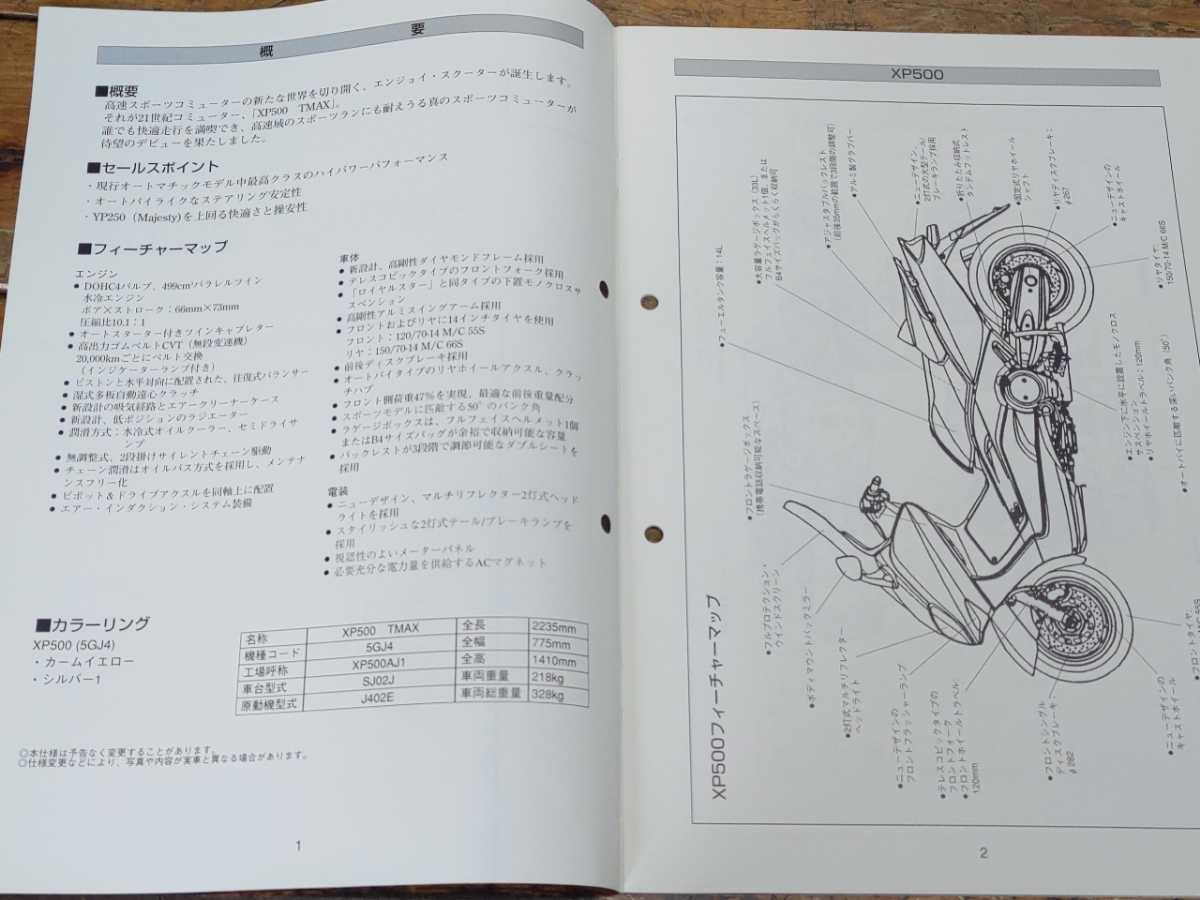 概 要
■概要
高速スポーツコミューターの新たな世界を切り開く、エンジョイ・スクーターが誕生します。
それが21世紀コミューター、「XP500 TMAX」。
誰でも快適走行を満喫でき、高速域のスポーツランにも耐えうる真のスポーツコミューターが
待望のデビューを果たしました。
■セールスポイント
・現行オートマチックモデル中最高クラスのハイパワーパフォーマンス
・オートバイライクなステアリング安定性
・YP250（Majesty)を上回る快適さと操安性
■フィーチャーマップ
エンジン
● DOHC4バルブ、499cm³パラレルツイン
水冷エンジン
ボア×ストローク：66mm×73mm
圧縮比10.1：1
● オートスターター付きツインキャブレター
● 高出力ゴムベルトCVT（無段変速機）
20,000kmごとにベルト交換
（インジケーターランプ付き）
● ピストンと水平対向に配置された、往復式バランサー
● 湿式多板自動遠心クラッチ
● 新設計の吸気経路とエアークリーナーケース
● 新設計、低ポジションのラジエーター
● 潤滑方式：水冷式オイルクーラー、セミドライサ
ンプ
● 無調整式、2段掛けサイレントチェーン駆動
● チェーン潤滑はオイルバス方式を採用し、メンテナ
ンスフリー化
● ピボット＆ドライブアクスルを同軸上に配置
● エアー・インダクション・システム装備
車体
● 新設計、高剛性ダイヤモンドフレーム採用
● テレスコピックタイプのフロントフォーク採用
● 「ロイヤルスター」と同タイプの下置モノクロスサ
スペンション
● 高剛性アルミスイングアーム採用
● フロントおよびリヤに14インチタイヤを使用
フロント：120/70-14 M/C 55S
リヤ：150/70-14 M/C 66S
● 前後ディスクブレーキ採用
● オートバイタイプのリヤホイールアクスル、クラッ
チハブ
● フロント側荷重47％を実現、最適な前後重量配分
● スポーツモデルに匹敵する50°のバンク角
● ラゲージボックスは、フルフェイスヘルメット1個
またはB4サイズバッグが余裕で収納可能な容量
● バックレストが3段階で調節可能なダブルシートを
採用
電装
● ニューデザイン、マルチリフレクター2灯式ヘッド
ライトを採用
● スタイリッシュな2灯式テール/ブレーキランプを
採用
● 視認性のよいメーターパネル
● 必要充分な電力量を供給するACマグネット
■カラーリング
XP500 (5GJ4)
・カームイエロー
・シルバー1
名称 XP500 TMAX 全長 2235mm
機種コード 5GJ4 全幅 775mm
工場呼称 XP500AJ1 全高 1410mm
車台型式 SJ02J 車両重量 218kg
原動機型式 J402E 車両総重量 328kg
◎本仕様は予告なく変更することがあります。
◎仕様変更などにより、写真や内容が実車と異なる場合があります。
1
XP500
XP500フィーチャーマップ
●フューエルタンク容量：14L
●大容量ラゲージボックス（33L）
フルフェイスヘルメット1個、または
B4サイズバッグがらくらく収納可
●アジャスタブルバックレスト
（前後35mmの範囲で3段階の調整可）
●アルミ製グラブバー
●ニューデザイン、
2灯式の大型テール/
ブレーキランプ採用
●折りたたみ収納式
タンデムフットレスト
●固定式リヤホイール
シャフト
●リヤディスクブレーキ：
φ267
●ニューデザインの
キャストホイール
●リヤタイヤ、
150/70-14 M/C 66S
●フロントラゲージボックス
（携帯電話収納可能なスペース）
●フルプロテクション・
ウインドスクリーン
●ボディマウントバックミラー
●2灯式マルチリフレクター
ヘッドライト
●ニューデザインの
フロントフラッシャーランプ
●テレスコピックタイプの
フロントフォーク
●フロントホイールトラベル：
120mm
●フロントシングル
ディスクブレーキ
φ282
●ニューデザインの
キャストホイール
●フロントタイヤ、
●エンジン下に水平に設置したモノクロス
サスペンション
●リヤホイールトラベル：120mm
●オートバイに匹敵する深いバンク角（50°）
2